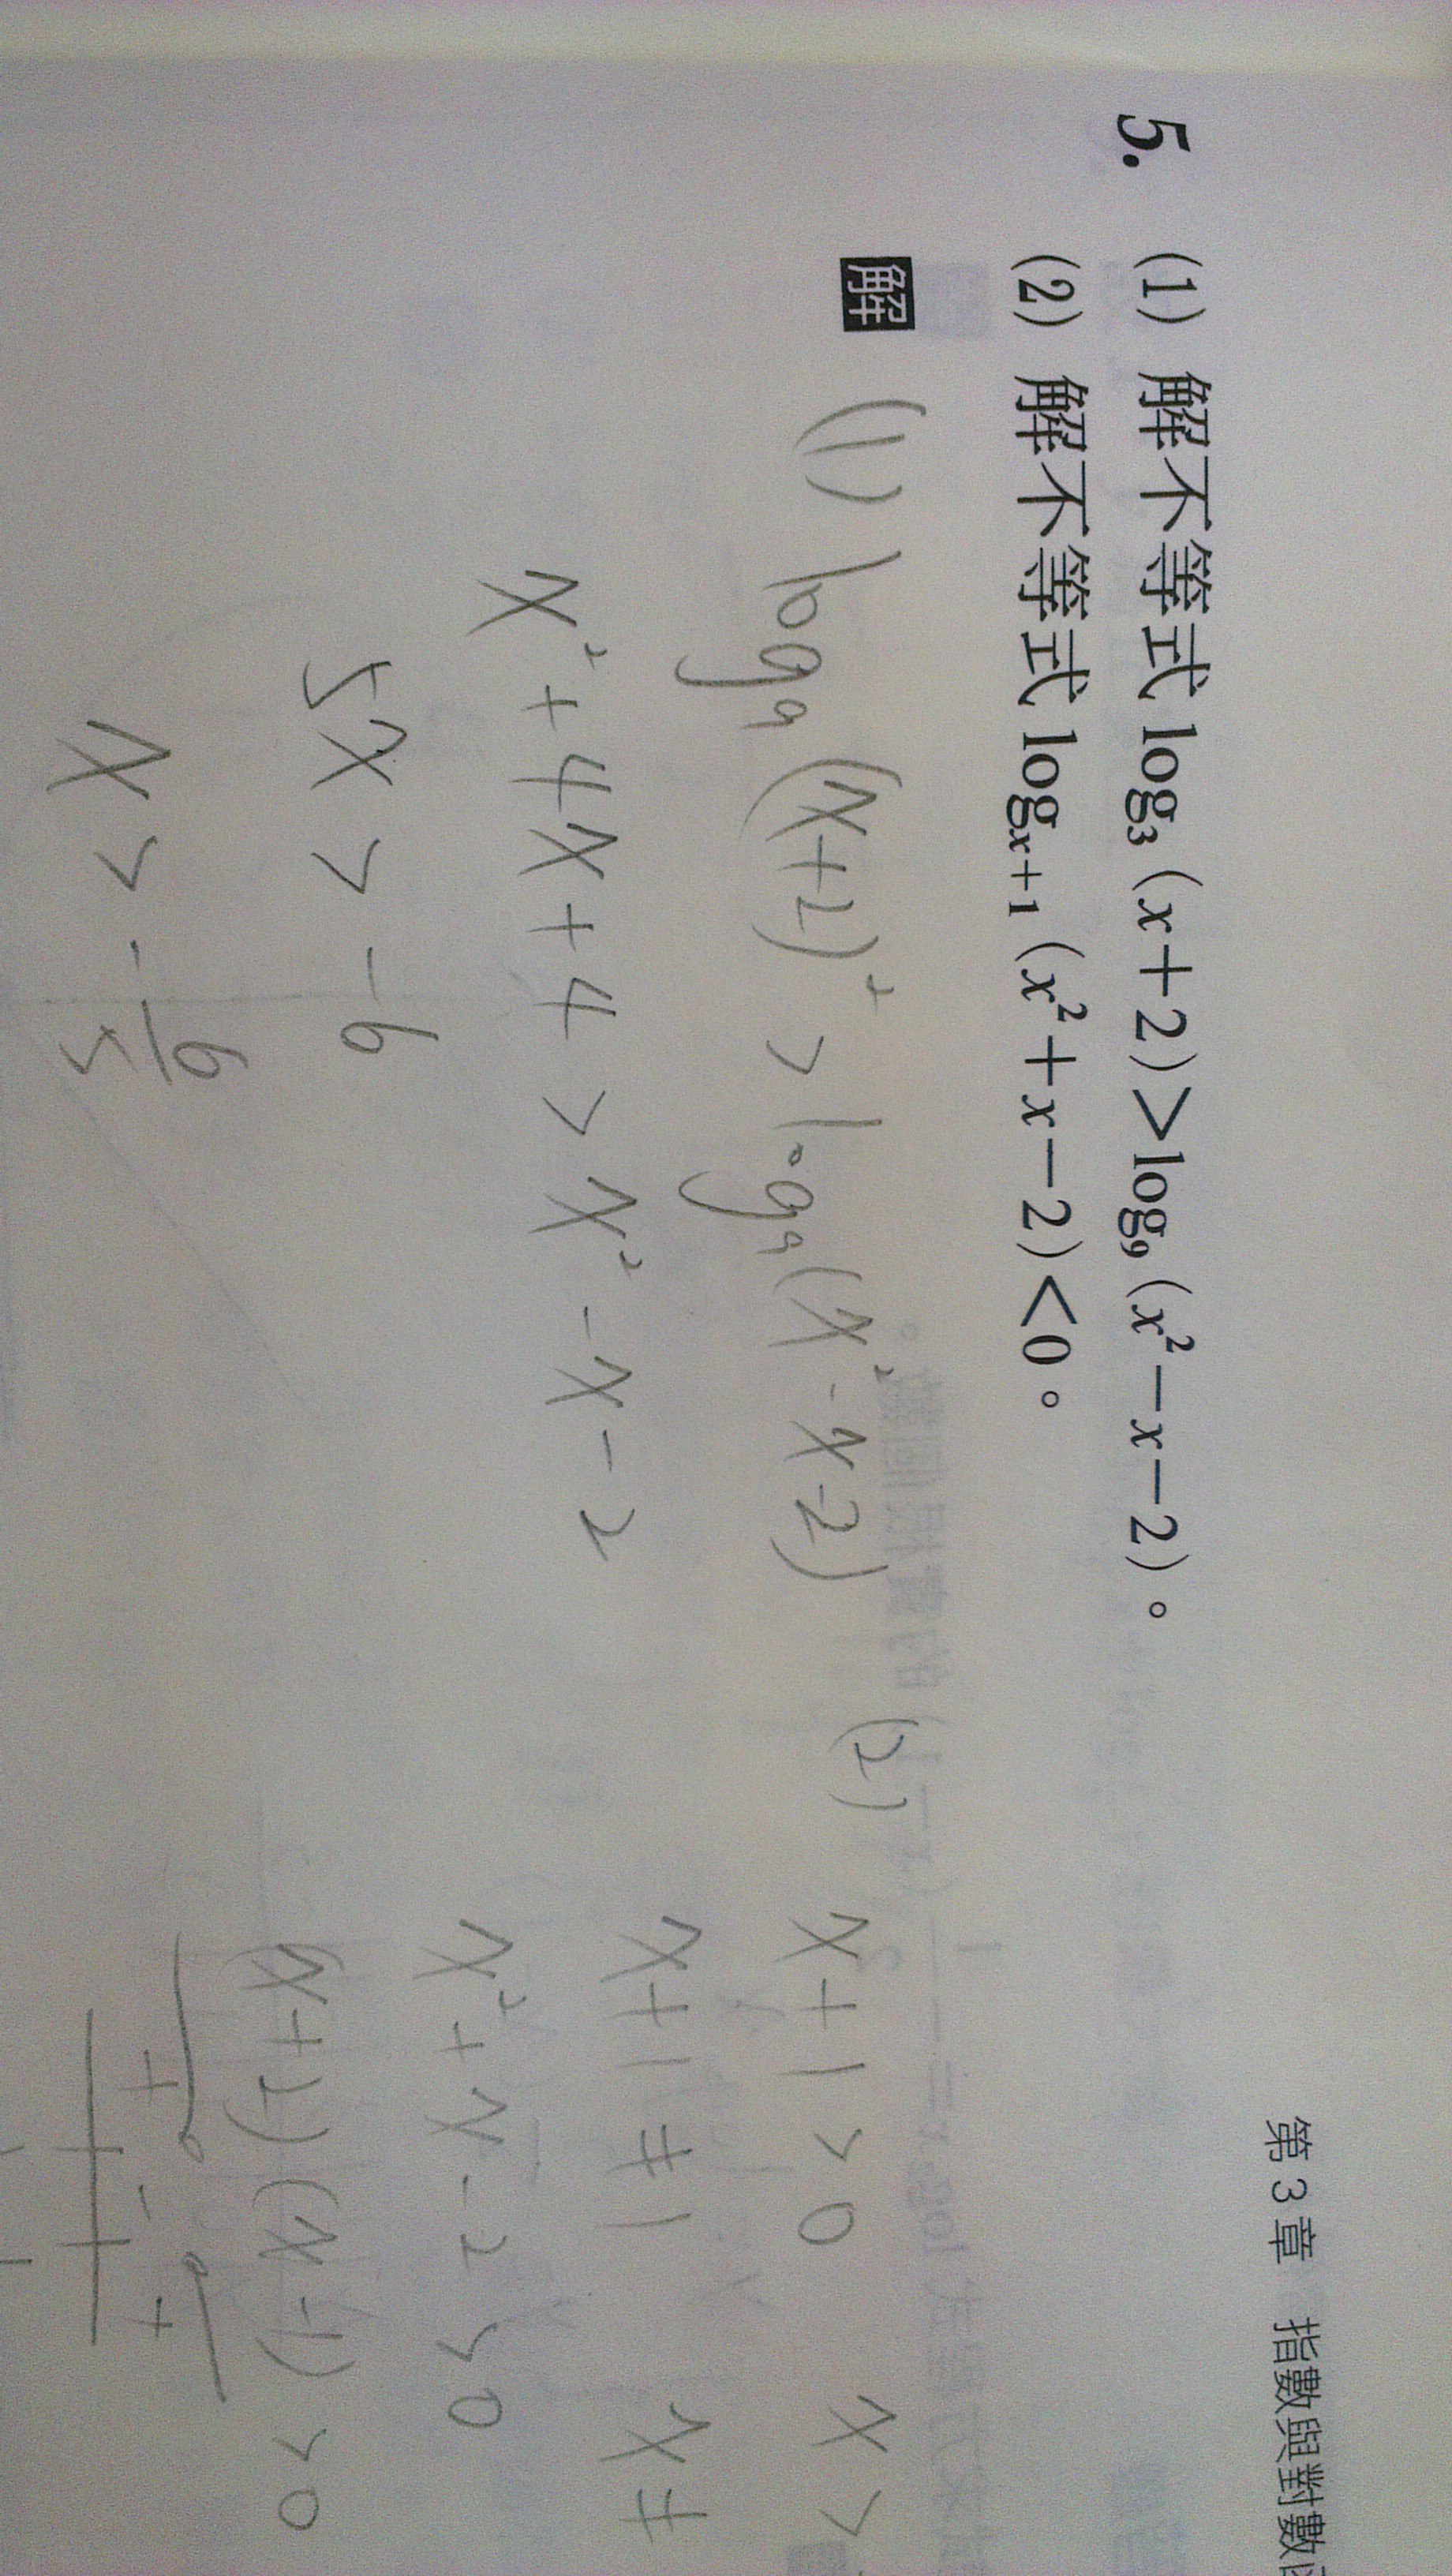 第3章 指數與對數
5. (1) 解不等式 log₃(x+2)>log₉(x²-x-2)。
(2) 解不等式 logₓ₊₁(x²+x-2)<0。
解
(1) log₉(x+2)² > log₉(x²-x-2)
x²+4x+4 > x²-x-2
5x > -6
x > -6/5
(2)
x+1>0 x>
x+1≠1 x≠
x²+x-2>0
(x+2)(x-1)>0
+ - +